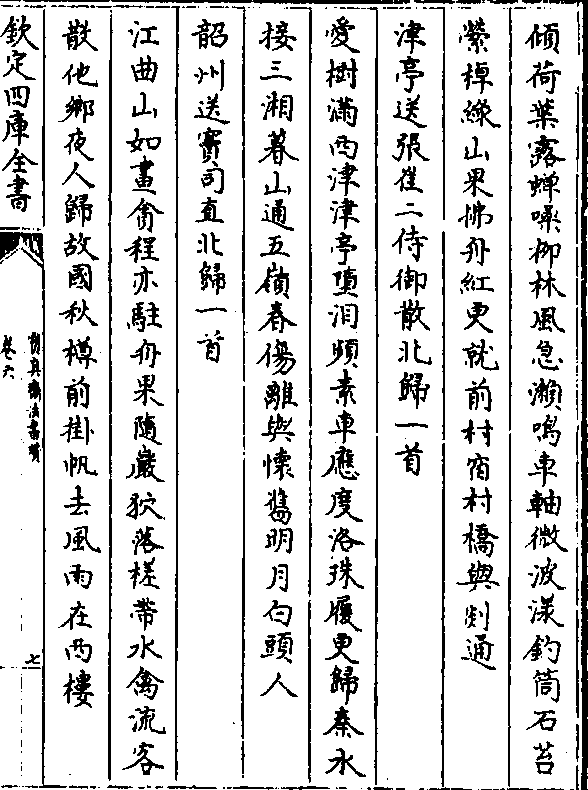 傾荷葉露蟬噪柳林風急瀨鳴車軸微波漾釣筒石苔
縈棹綠山果拂舟紅更就前村宿村橋與剡通
津亭送張崔二侍御散北歸一首
愛樹滿西津津亭墮泪頻素車應度洛珠履更歸秦水
接三湘暮山通五嶺春傷離與懷舊明月白頭人
韶州送竇司直北歸一首
江曲山如畫貪程亦駐舟果隨巖狖落槎帶水禽流客
散他鄉夜人歸故國秋樽前掛帆去風雨在西樓
欽定四庫全書
卷六
七